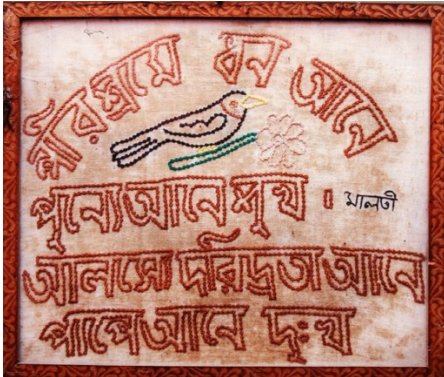 পরিশ্রমে ধন আনে
পূন্যেআনে সূখ । মালতী
আলসে্য দারিদ্রতাআনে
পাপেআনে দুঃখ